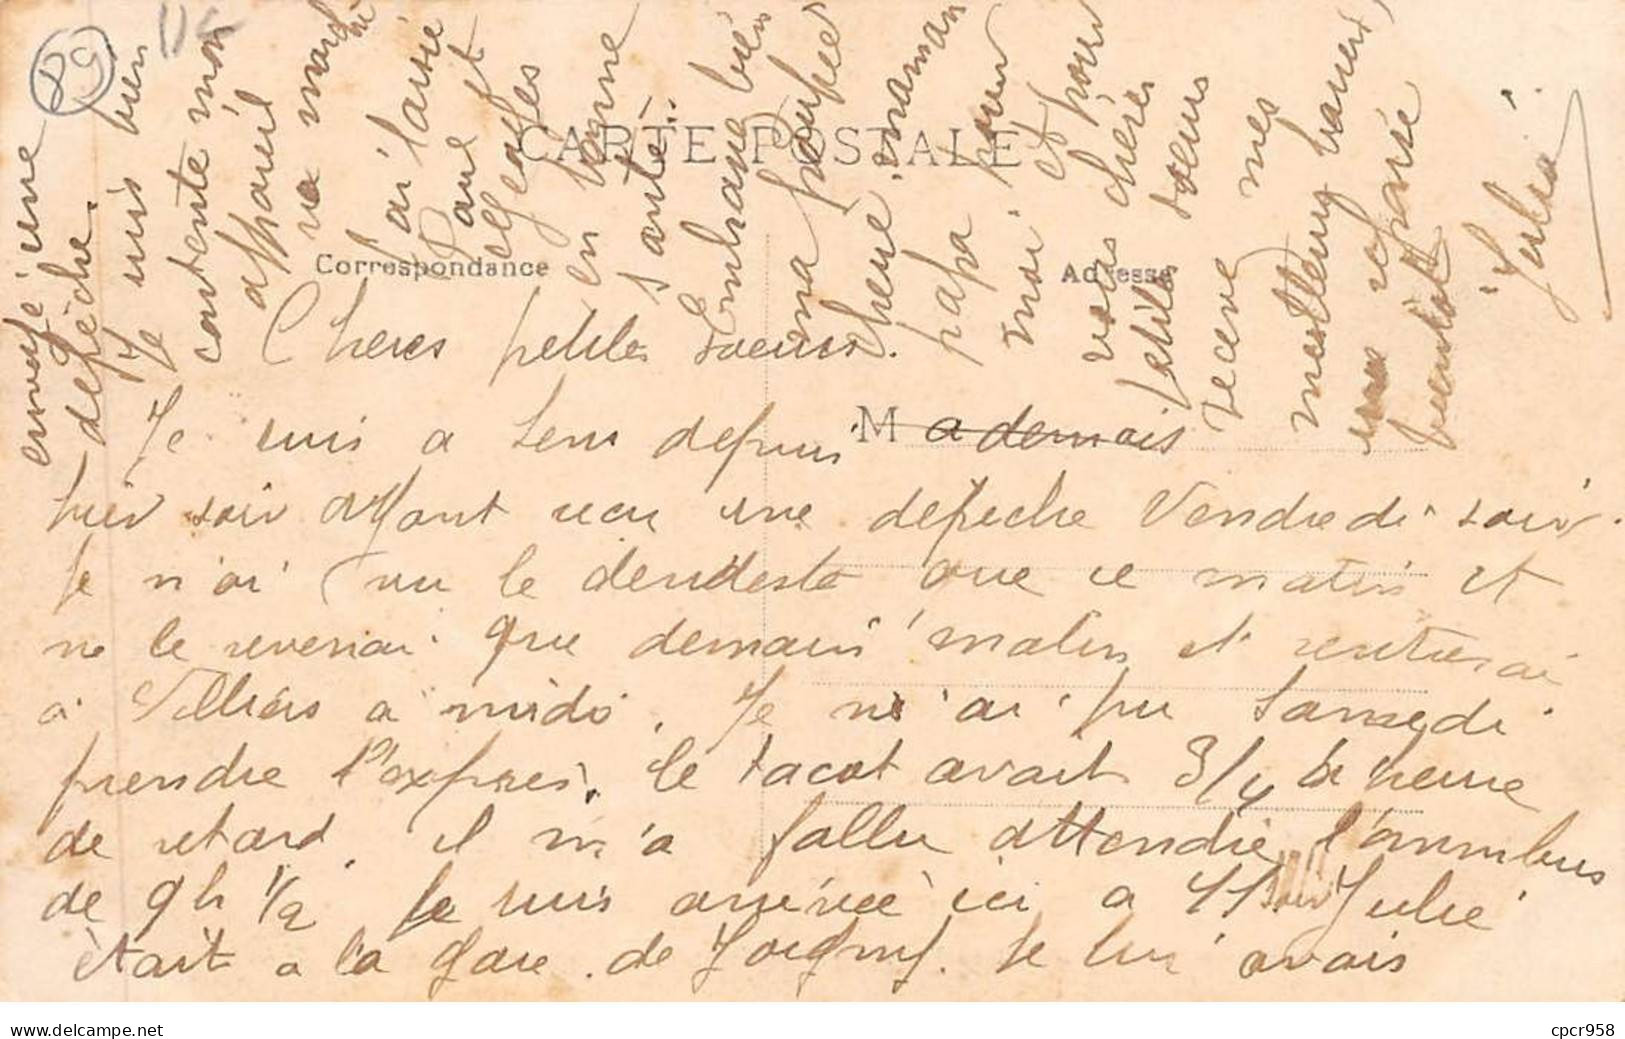 89
CARTE POSTALE
Correspondance
Adresse
M ademois
Cheres petites soeurs.
Je suis a Sens depuis
hier soir ayant recu une depeche Vendredi soir.
Je n'ai vu le dentiste que ce matin et
ne le reverrai que demain matin et rentrerai
a Villiers a midi. Je n'ai pu Samedi
prendre l'express, le tacot avait 3/4 d'heure
de retard, il m'a fallu attendre l'omnibus
de 9h 1/2 Je suis arrivée ici a 11 soir Julie
était a la gare de Joigny. Je lui avais
envoyé une
depêche.
Je suis bien
contente mon
appareil
va
j'ai laissé
Paul et
en bonne
santé.
Embrasse bien
ma poupée
cherie, maman
papa pour
moi. et pour
vous chères
petites soeurs
recevez mes
meilleurs baisers
delcampe.net
cpcr958